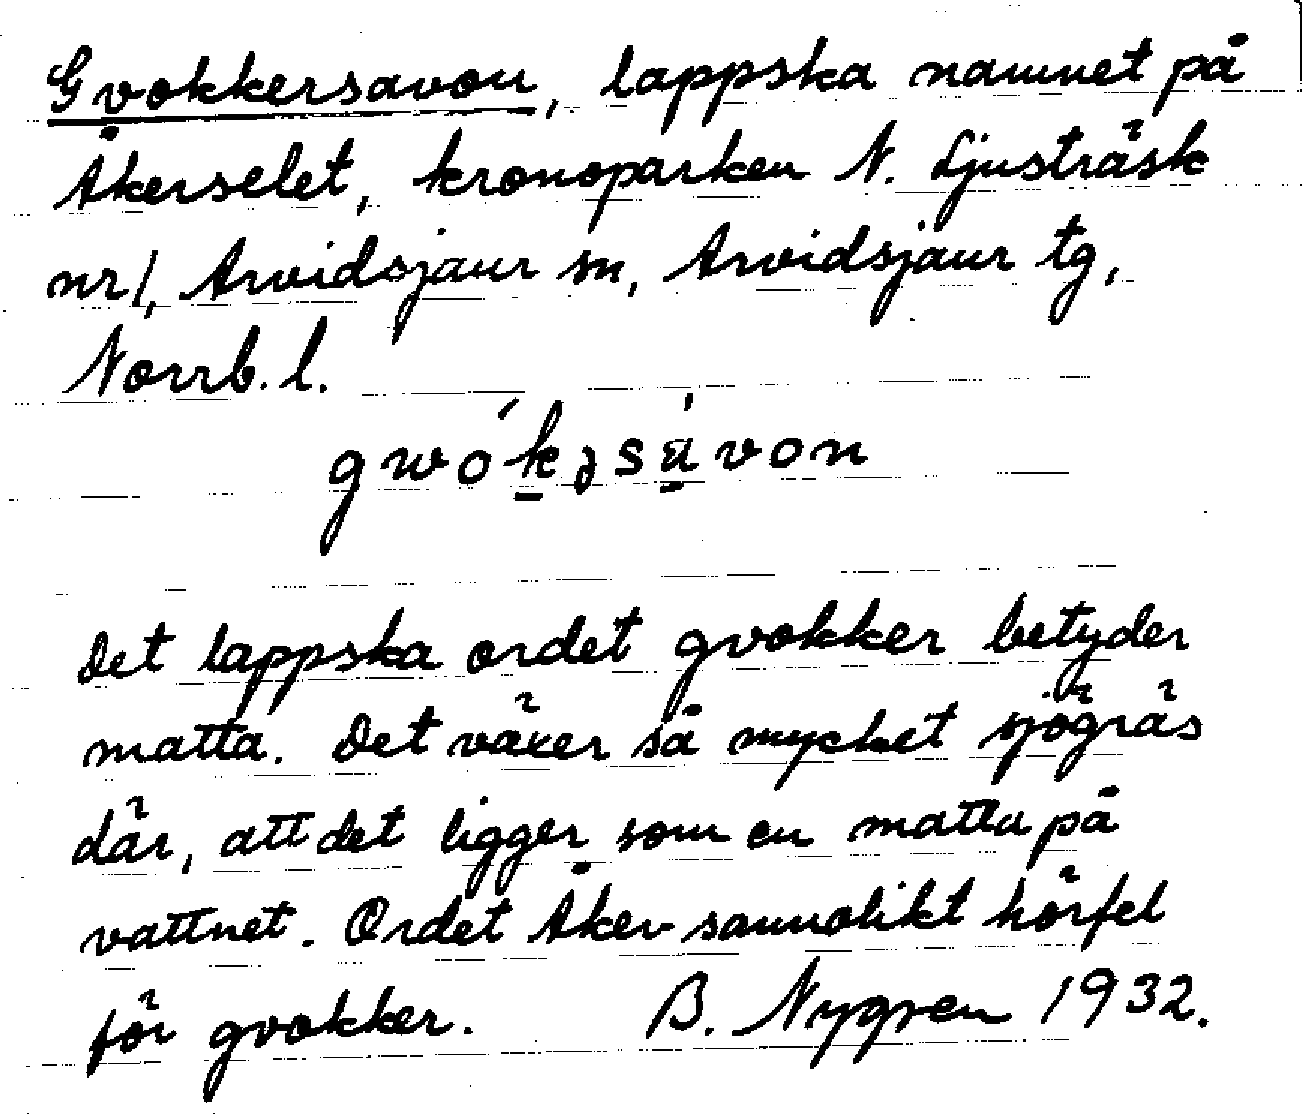 Gvokkersavon, lappska namnet på
Åkerselet, kronoparken N. Ljusträsk
nr 1, Arvidsjaur sn, Arvidsjaur tg,
Norrb. l.
gwók̠ʒsá̠von
Det lappska ordet gvokker betyder
matta. Det växer så mycket sjögräs
där, att det ligger som en matta på
vattnet. Ordet Åker sannolikt hörfel
för gvokker. B. Nygren 1932.